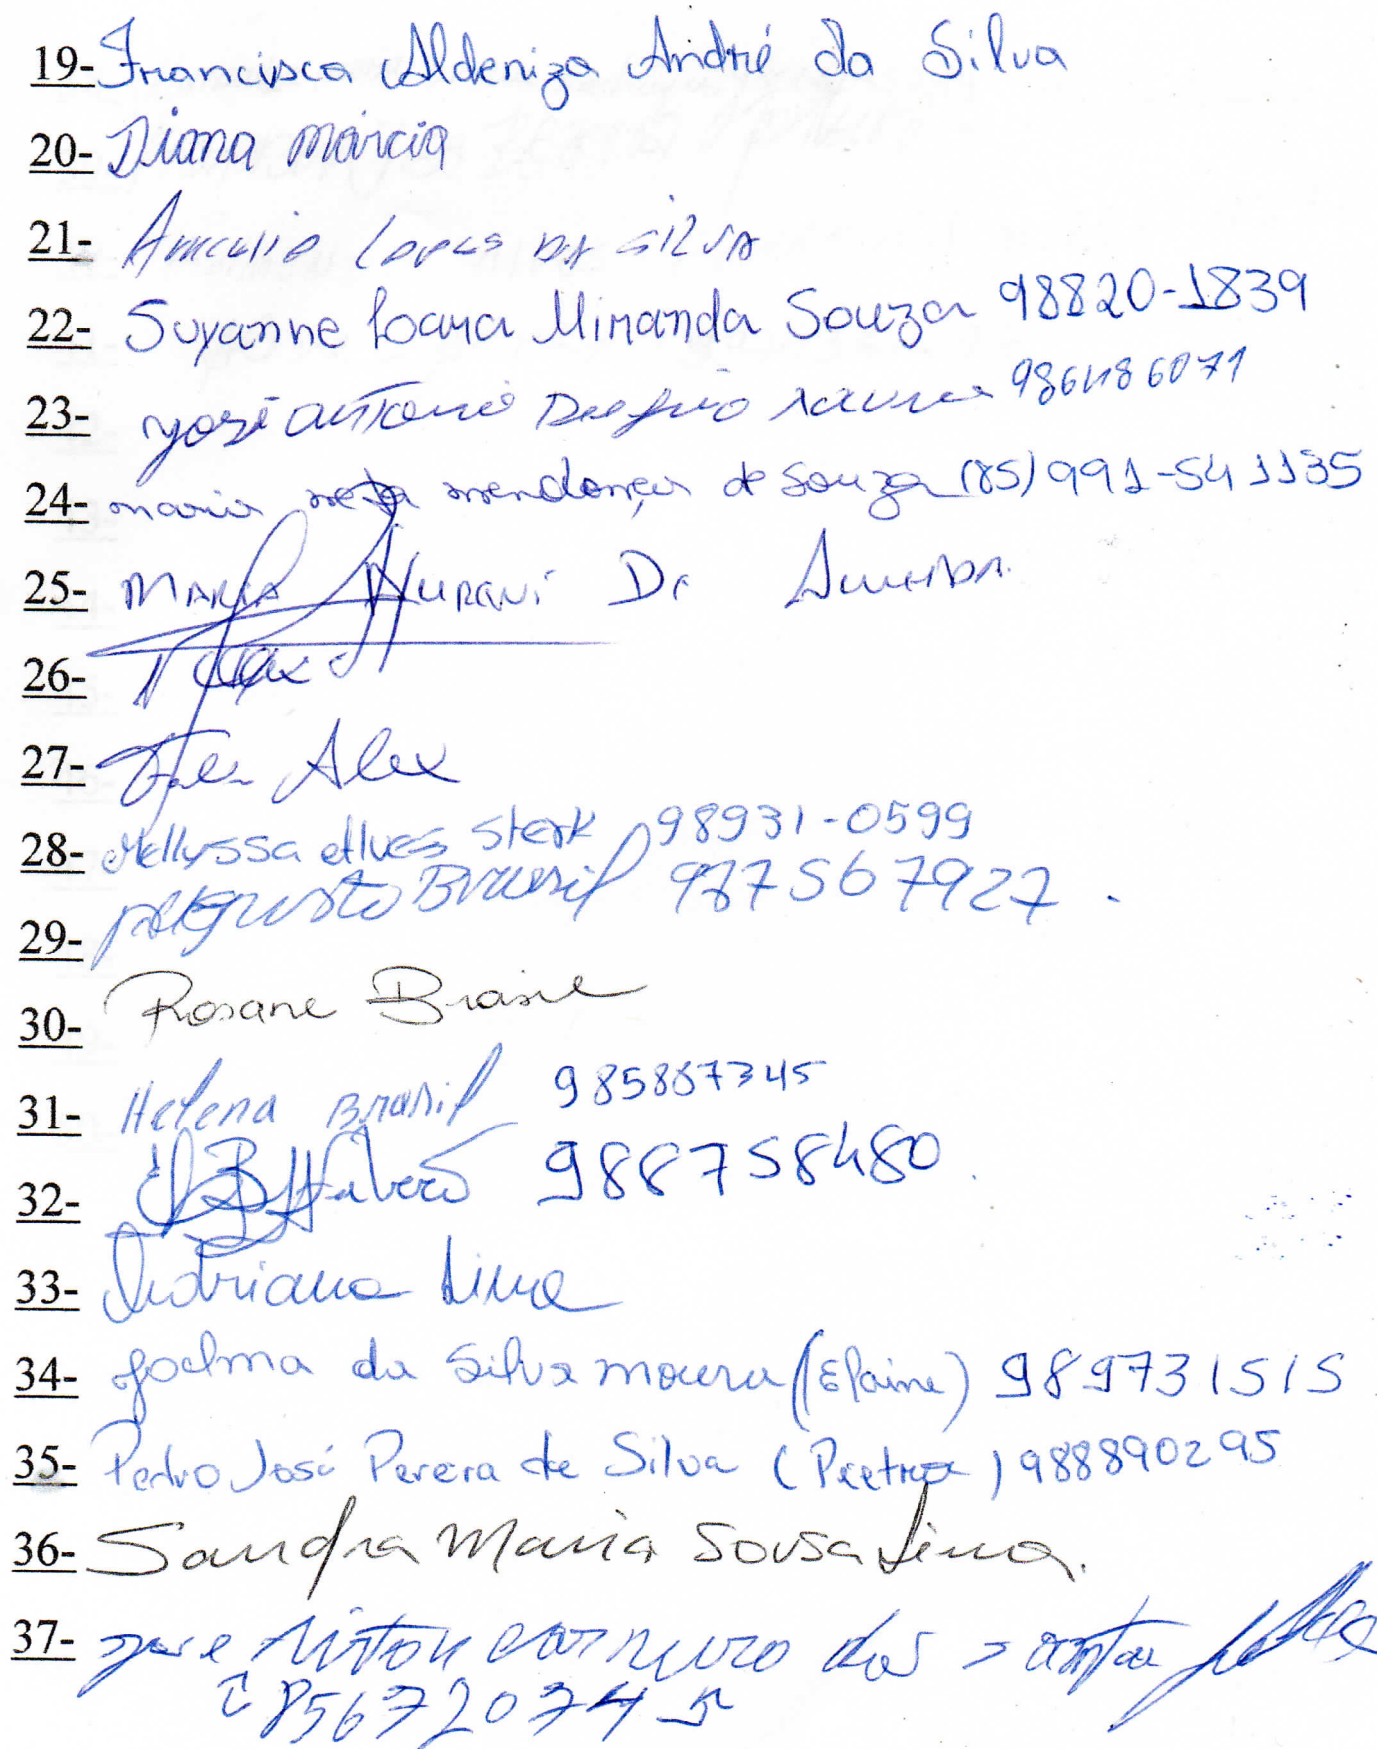 19- Francisca Aldeniza André da Silva
20- Diana Márcia
21- Lopes DA SILVA
22- Suyanne Ioara Miranda Souza 98820-1839
23- José Antonio
24- maria neta mendonça de Souza (85) 991-541135
25- MARIA De Almeida
26-
27- Alex
28- Mellyssa Alves Stark 98931-0599
29- Augusto Brasil 987567927
30- Rosane Brasil
31- Helena Brasil 985887345
32- 988758480
33- Adriana Lima
34- Joelma da Silva moura (Elaine) 989731515
35- Pedro José Perera de Silva (Pietra) 988890295
36- Sandra Maria Sousa Lima.
37- Carneiro dos